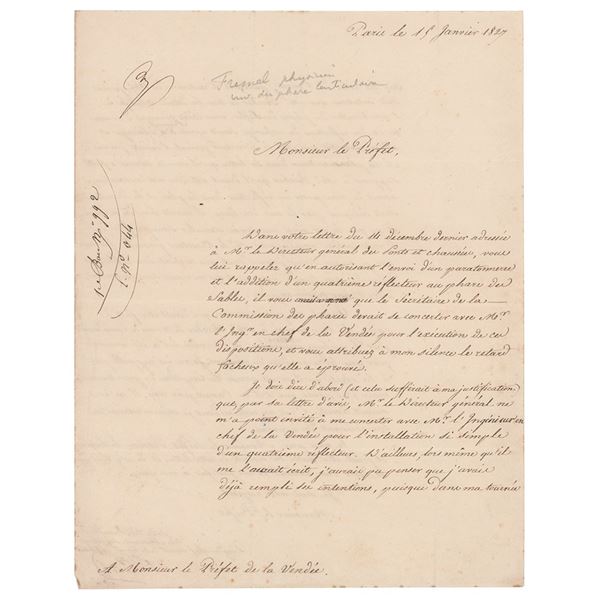 Paris le 15 Janvier 1827
Fresnel physicien
inv. du phare lenticulaire
Monsieur le Préfet,
1er Bur. No. 992
L. No. 644
Dans votre lettre du 14 décembre dernier adressée
à Mr. le Directeur général des Ponts et chaussées, vous
lui rappelez qu'en autorisant l'envoi d'un paratonnerre
et l'addition d'un quatrième réflecteur au phare des
Sables, il vous que le Secrétaire de la
Commission des phares devait se concerter avec Mr.
l'Ingr. en chef de la Vendée pour l'exécution de ces
dispositions, et vous attribuez à mon silence le retard
fâcheux qu'elle a éprouvé.
Je dois dire d'abord (et cela suffirait à ma justification)
que, par sa lettre d'avis, Mr. le Directeur général ne
m'a point invité à me concerter avec Mr. l'Ingénieur en
chef de la Vendée pour l'installation si simple
d'un quatrième réflecteur. D'ailleurs, lors même qu'il
me l'aurait écrit, j'aurais pu penser que j'avais
déjà rempli ses intentions, puisque dans ma tournée
A Monsieur le Préfet de la Vendée.